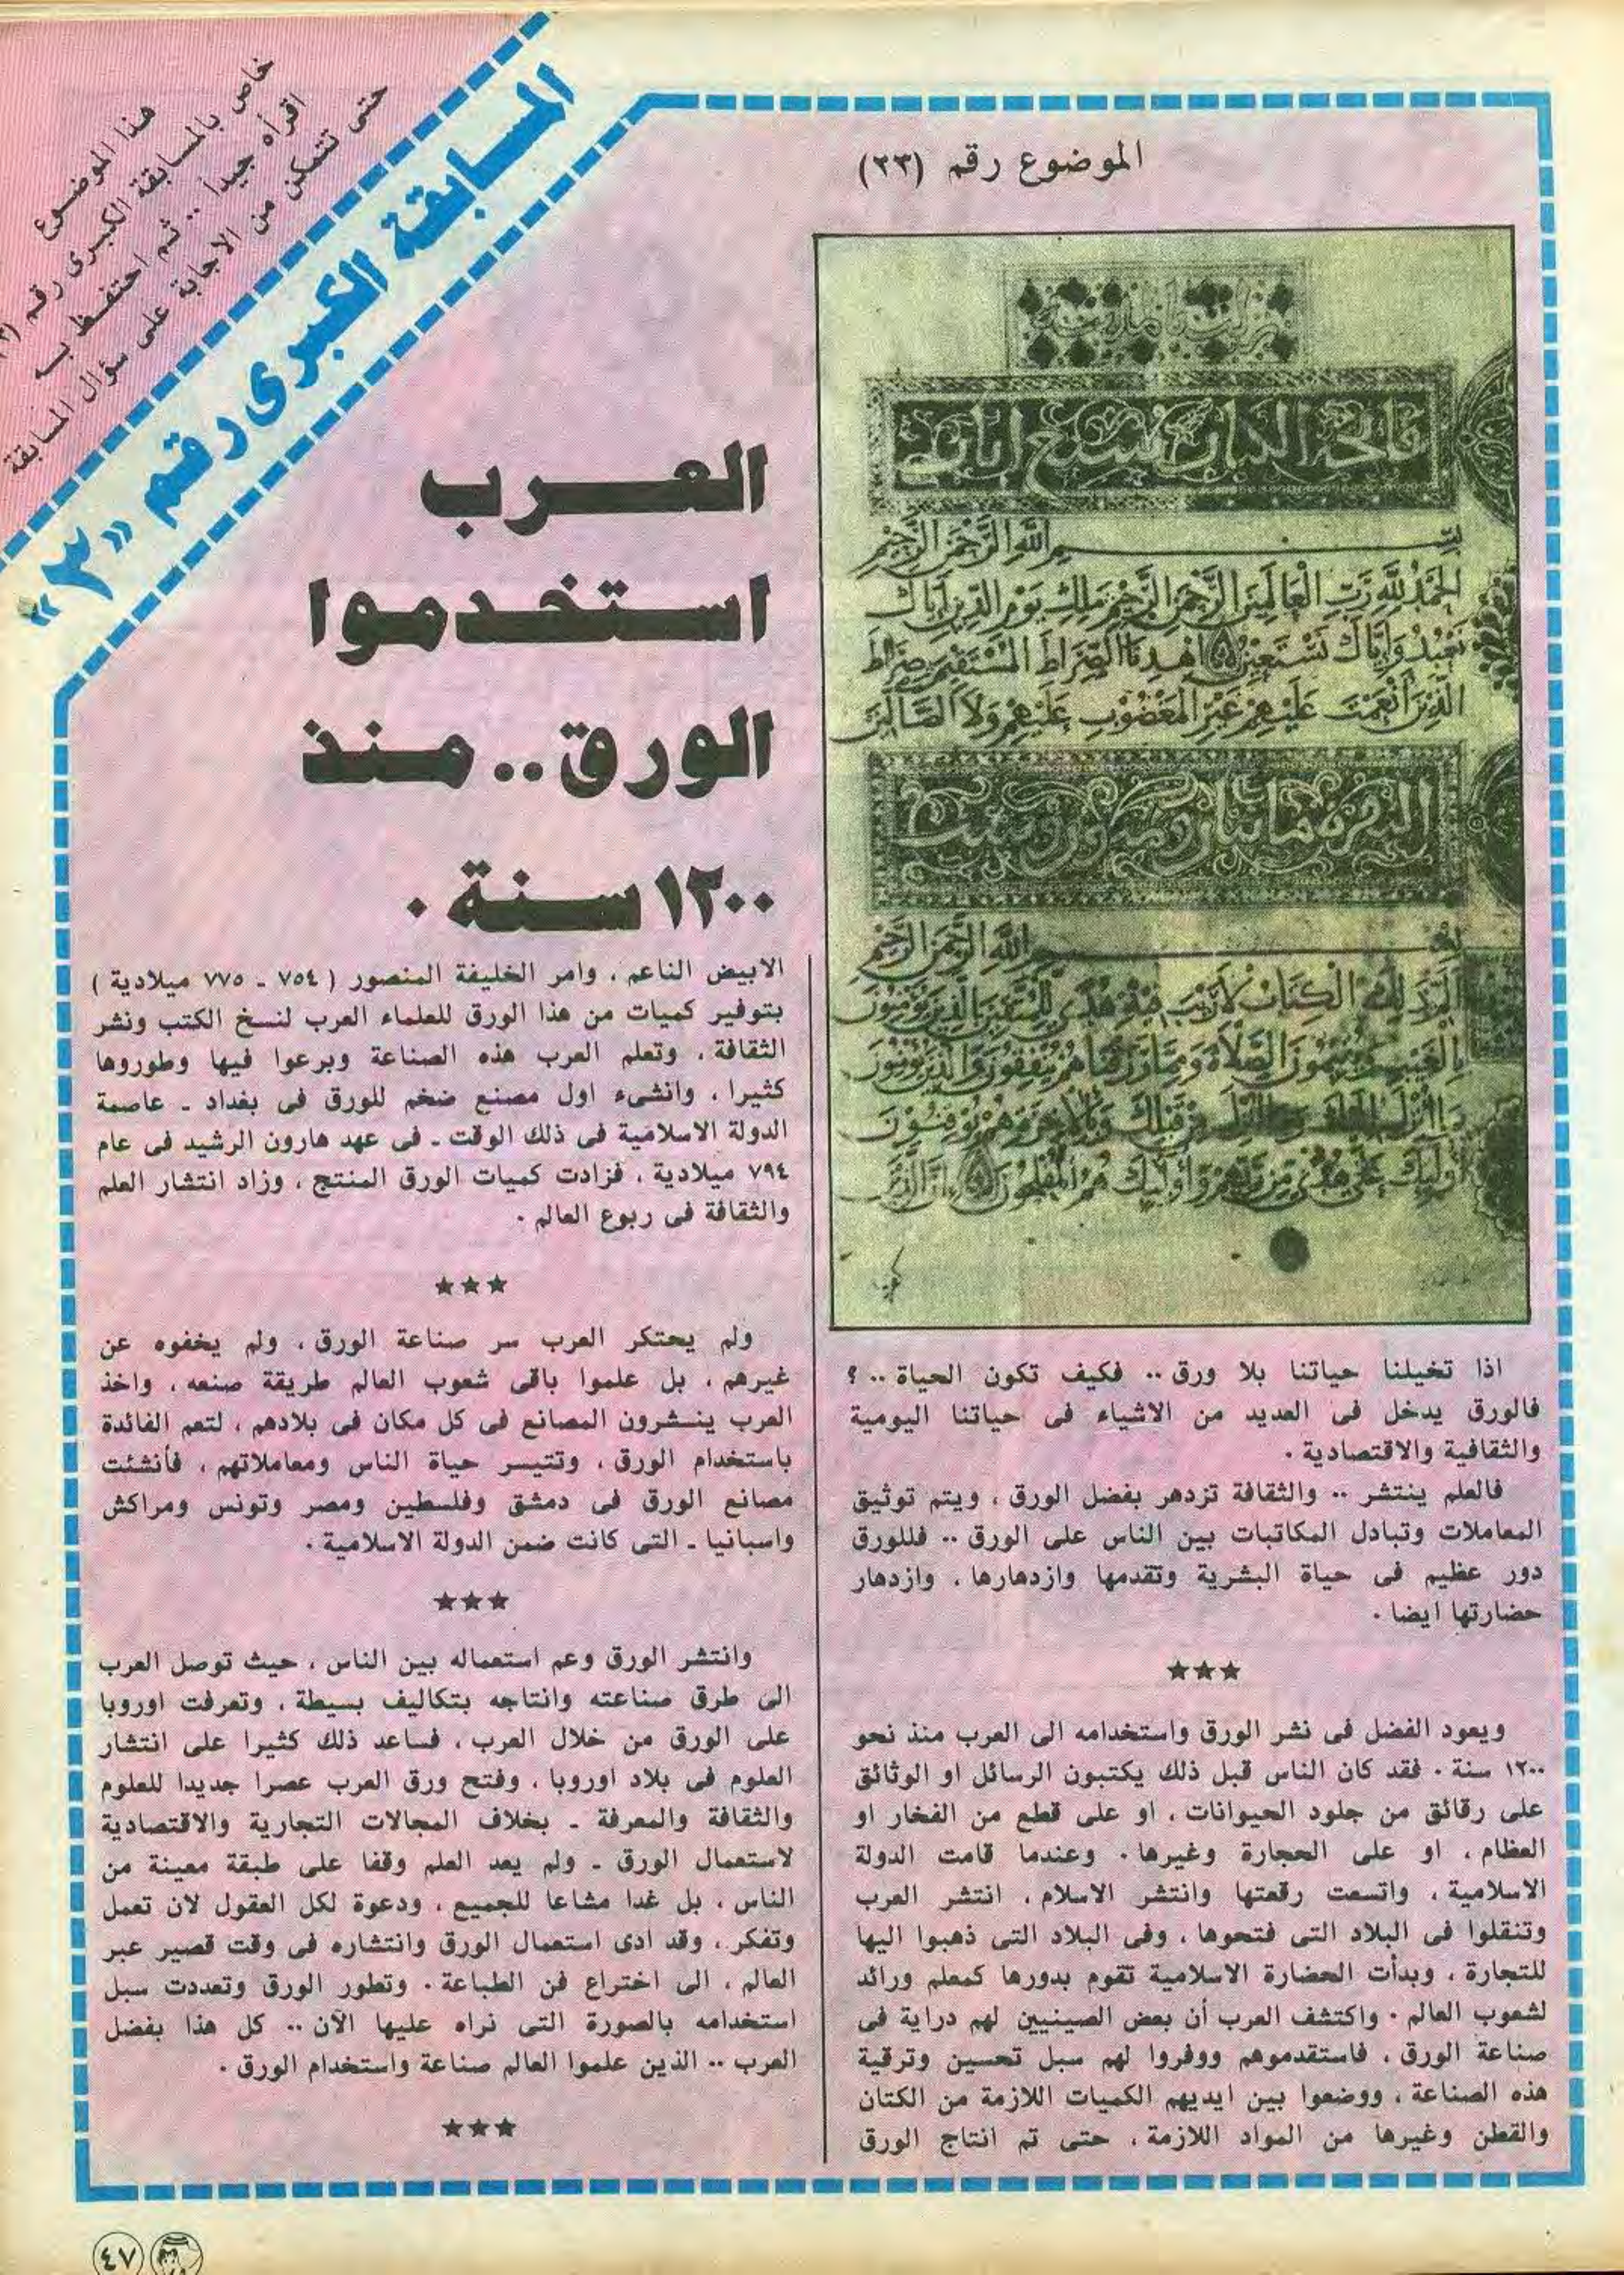 هذا الموضوع
خاص بالمسابقة الكبرى رقم
اقرأه جيداً .. ثم احتفظ به
حتى تتمكن من الاجابة على سؤال المسابقة
المسابقة الكبرى رقم «٢»
الموضوع رقم (٢٣)
العرب
استخدموا
الورق.. منذ
١٢٠٠ سنة .
بسم الله الرحمن الرحيم
الحمد لله رب العالمين الرحمن الرحيم ملك يوم الدين اياك
نعبد واياك نستعين اهدنا الصراط المستقيم صراط
الذين انعمت عليهم غير المغضوب عليهم ولا الضالين
بسم الله الرحمن الرحيم
الم ذلك الكتاب لا ريب فيه هدى للمتقين الذين يؤمنون
بالغيب ويقيمون الصلاة ومما رزقناهم ينفقون والذين يؤمنون
اولئك على هدى من ربهم واولئك هم المفلحون ان الذين
اذا تخيلنا حياتنا بلا ورق .. فكيف تكون الحياة .. ؟
فالورق يدخل فى العديد من الاشياء فى حياتنا اليومية
والثقافية والاقتصادية .
فالعلم ينتشر .. والثقافة تزدهر بفضل الورق ، ويتم توثيق
المعاملات وتبادل المكاتبات بين الناس على الورق .. فللورق
دور عظيم فى حياة البشرية وتقدمها وازدهارها ، وازدهار
حضارتها ايضا .
★★★
ويعود الفضل فى نشر الورق واستخدامه الى العرب منذ نحو
١٢٠٠ سنة . فقد كان الناس قبل ذلك يكتبون الرسائل او الوثائق
على رقائق من جلود الحيوانات ، او على قطع من الفخار او
العظام ، او على الحجارة وغيرها . وعندما قامت الدولة
الاسلامية ، واتسعت رقعتها وانتشر الاسلام ، انتشر العرب
وتنقلوا فى البلاد التى فتحوها ، وفى البلاد التى ذهبوا اليها
للتجارة ، وبدأت الحضارة الاسلامية تقوم بدورها كمعلم ورائد
لشعوب العالم . واكتشف العرب أن بعض الصينيين لهم دراية فى
صناعة الورق ، فاستقدموهم ووفروا لهم سبل تحسين وترقية
هذه الصناعة ، ووضعوا بين ايديهم الكميات اللازمة من الكتان
والقطن وغيرها من المواد اللازمة ، حتى تم انتاج الورق
الابيض الناعم ، وامر الخليفة المنصور ( ٧٥٤ - ٧٧٥ ميلادية )
بتوفير كميات من هذا الورق للعلماء العرب لنسخ الكتب ونشر
الثقافة ، وتعلم العرب هذه الصناعة وبرعوا فيها وطوروها
كثيرا ، وانشىء اول مصنع ضخم للورق فى بغداد - عاصمة
الدولة الاسلامية فى ذلك الوقت - فى عهد هارون الرشيد فى عام
٧٩٤ ميلادية ، فزادت كميات الورق المنتج ، وزاد انتشار العلم
والثقافة فى ربوع العالم .
★★★
ولم يحتكر العرب سر صناعة الورق ، ولم يخفوه عن
غيرهم ، بل علموا باقى شعوب العالم طريقة صنعه ، واخذ
العرب ينشرون المصانع فى كل مكان فى بلادهم ، لتعم الفائدة
باستخدام الورق ، وتتيسر حياة الناس ومعاملاتهم ، فأنشئت
مصانع الورق فى دمشق وفلسطين ومصر وتونس ومراكش
واسبانيا - التى كانت ضمن الدولة الاسلامية .
★★★
وانتشر الورق وعم استعماله بين الناس ، حيث توصل العرب
الى طرق صناعته وانتاجه بتكاليف بسيطة ، وتعرفت اوروبا
على الورق من خلال العرب ، فساعد ذلك كثيرا على انتشار
العلوم فى بلاد اوروبا ، وفتح ورق العرب عصرا جديدا للعلوم
والثقافة والمعرفة - بخلاف المجالات التجارية والاقتصادية
لاستعمال الورق - ولم يعد العلم وقفا على طبقة معينة من
الناس ، بل غدا مشاعا للجميع ، ودعوة لكل العقول لان تعمل
وتفكر ، وقد ادى استعمال الورق وانتشاره فى وقت قصير عبر
العالم ، الى اختراع فن الطباعة . وتطور الورق وتعددت سبل
استخدامه بالصورة التى نراه عليها الآن .. كل هذا بفضل
العرب .. الذين علموا العالم صناعة واستخدام الورق .
★★★
٤٧